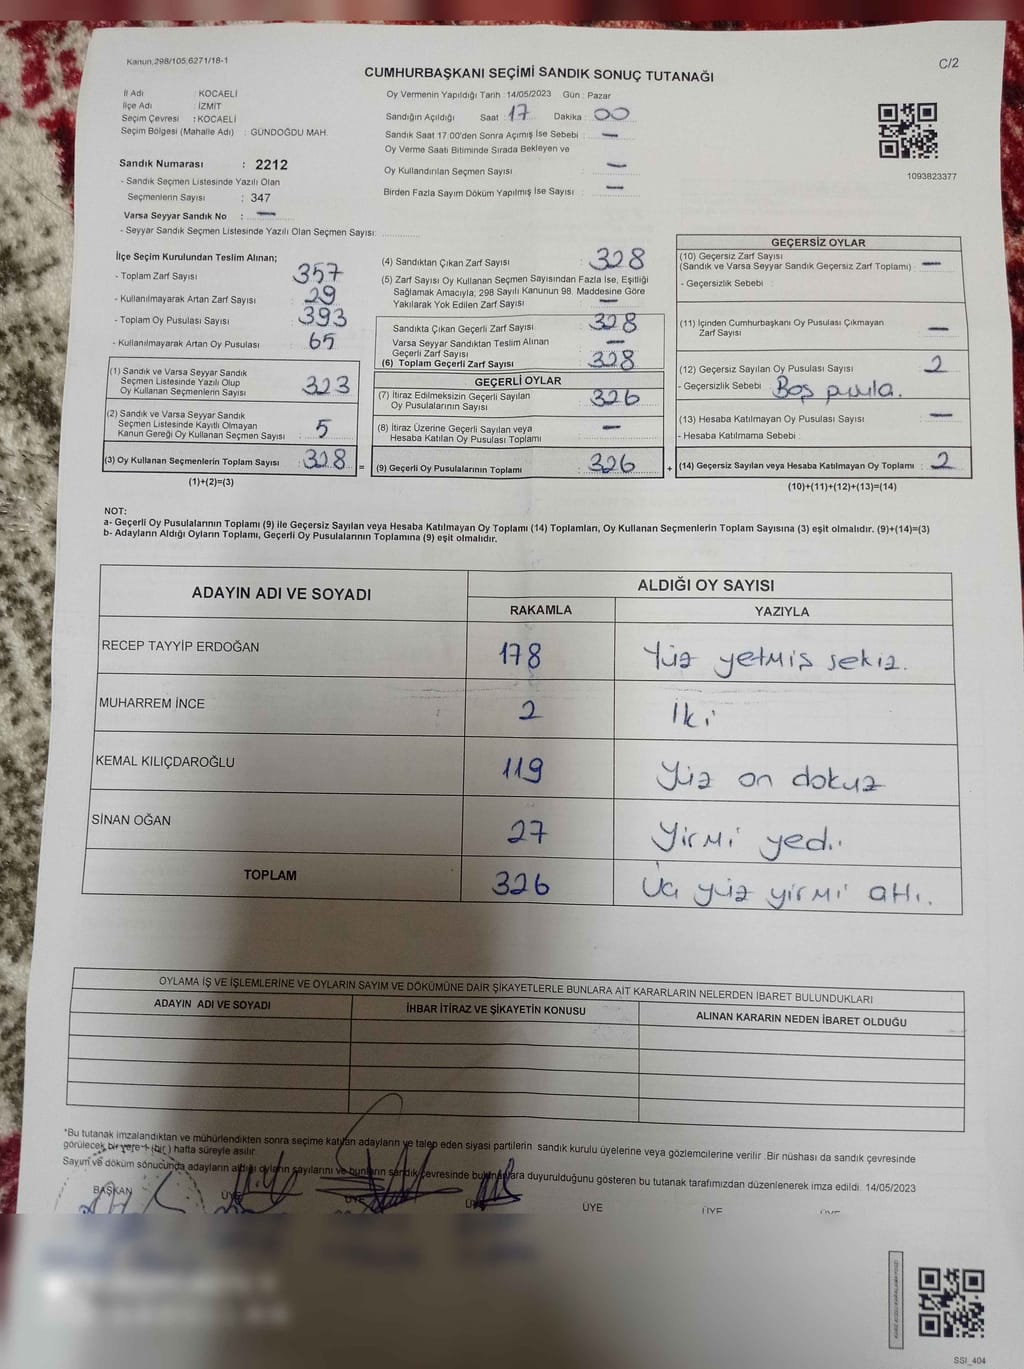 Kanun.298/105,6271/18-1
C/2
CUMHURBAŞKANI SEÇİMİ SANDIK SONUÇ TUTANAĞI
İl Adı : KOCAELİ
İlçe Adı : İZMİT
Seçim Çevresi : KOCAELİ
Seçim Bölgesi (Mahalle Adı) : GÜNDOĞDU MAH.
Sandık Numarası : 2212
- Sandık Seçmen Listesinde Yazılı Olan
Seçmenlerin Sayısı : 347
Varsa Seyyar Sandık No : —
- Seyyar Sandık Seçmen Listesinde Yazılı Olan Seçmen Sayısı:
Oy Vermenin Yapıldığı Tarih : 14/05/2023 Gün : Pazar
Sandığın Açıldığı Saat : 17 Dakika : 00
Sandık Saat 17:00'den Sonra Açımış İse Sebebi : —
Oy Verme Saati Bitiminde Sırada Bekleyen ve
Oy Kullandırılan Seçmen Sayısı : —
Birden Fazla Sayım Döküm Yapılmış İse Sayısı : —
1093823377
İlçe Seçim Kurulundan Teslim Alınan;
- Toplam Zarf Sayısı : 357
- Kullanılmayarak Artan Zarf Sayısı : 29
- Toplam Oy Pusulası Sayısı : 393
- Kullanılmayarak Artan Oy Pusulası : 65
(1) Sandık ve Varsa Seyyar Sandık
Seçmen Listesinde Yazılı Olup
Oy Kullanan Seçmenlerin Sayısı : 323
(2) Sandık ve Varsa Seyyar Sandık
Seçmen Listesinde Kayıtlı Olmayan
Kanun Gereği Oy Kullanan Seçmen Sayısı : 5
(3) Oy Kullanan Seçmenlerin Toplam Sayısı : 328
(1)+(2)=(3)
(4) Sandıktan Çıkan Zarf Sayısı : 328
(5) Zarf Sayısı Oy Kullanan Seçmen Sayısından Fazla İse, Eşitliği
Sağlamak Amacıyla; 298 Sayılı Kanunun 98. Maddesine Göre
Yakılarak Yok Edilen Zarf Sayısı : —
Sandıkta Çıkan Geçerli Zarf Sayısı : 328
Varsa Seyyar Sandıktan Teslim Alınan
Geçerli Zarf Sayısı : —
(6) Toplam Geçerli Zarf Sayısı : 328
GEÇERLİ OYLAR
(7) İtiraz Edilmeksizin Geçerli Sayılan
Oy Pusulalarının Sayısı : 326
(8) İtiraz Üzerine Geçerli Sayılan veya
Hesaba Katılan Oy Pusulası Toplamı : —
= (9) Geçerli Oy Pusulalarının Toplamı : 326 +
GEÇERSİZ OYLAR
(10) Geçersiz Zarf Sayısı
(Sandık ve Varsa Seyyar Sandık Geçersiz Zarf Toplamı) : —
- Geçersizlik Sebebi :
(11) İçinden Cumhurbaşkanı Oy Pusulası Çıkmayan
Zarf Sayısı : —
(12) Geçersiz Sayılan Oy Pusulası Sayısı : 2
- Geçersizlik Sebebi : Boş pusula.
(13) Hesaba Katılmayan Oy Pusulası Sayısı : —
- Hesaba Katılmama Sebebi :
(14) Geçersiz Sayılan veya Hesaba Katılmayan Oy Toplamı : 2
(10)+(11)+(12)+(13)=(14)
NOT:
a- Geçerli Oy Pusulalarının Toplamı (9) ile Geçersiz Sayılan veya Hesaba Katılmayan Oy Toplamı (14) Toplamları, Oy Kullanan Seçmenlerin Toplam Sayısına (3) eşit olmalıdır. (9)+(14)=(3)
b- Adayların Aldığı Oyların Toplamı, Geçerli Oy Pusulalarının Toplamına (9) eşit olmalıdır.
ADAYIN ADI VE SOYADI ALDIĞI OY SAYISI
RAKAMLA YAZIYLA
RECEP TAYYİP ERDOĞAN 178 Yüz yetmiş sekiz.
MUHARREM İNCE 2 İki
KEMAL KILIÇDAROĞLU 119 Yüz on dokuz
SİNAN OĞAN 27 Yirmi yedi
TOPLAM 326 Üç yüz yirmi altı.
OYLAMA İŞ VE İŞLEMLERİNE VE OYLARIN SAYIM VE DÖKÜMÜNE DAİR ŞİKAYETLERLE BUNLARA AİT KARARLARIN NELERDEN İBARET BULUNDUKLARI
ADAYIN ADI VE SOYADI İHBAR İTİRAZ VE ŞİKAYETİN KONUSU ALINAN KARARIN NEDEN İBARET OLDUĞU
*Bu tutanak imzalandıktan ve mühürlendikten sonra seçime katılan adayların ve talep eden siyasi partilerin sandık kurulu üyelerine veya gözlemcilerine verilir .Bir nüshası da sandık çevresinde
görülecek bir yere 1 (bir) hafta süreyle asılır.
Sayım ve döküm sonucunda adayların aldığı oyların sayılarını ve bunların sandık çevresinde bulunanlara duyurulduğunu gösteren bu tutanak tarafımızdan düzenlenerek imza edildi. 14/05/2023
BAŞKAN ÜYE ÜYE ÜYE ÜYE ÜYE ÜYE
SSI_404